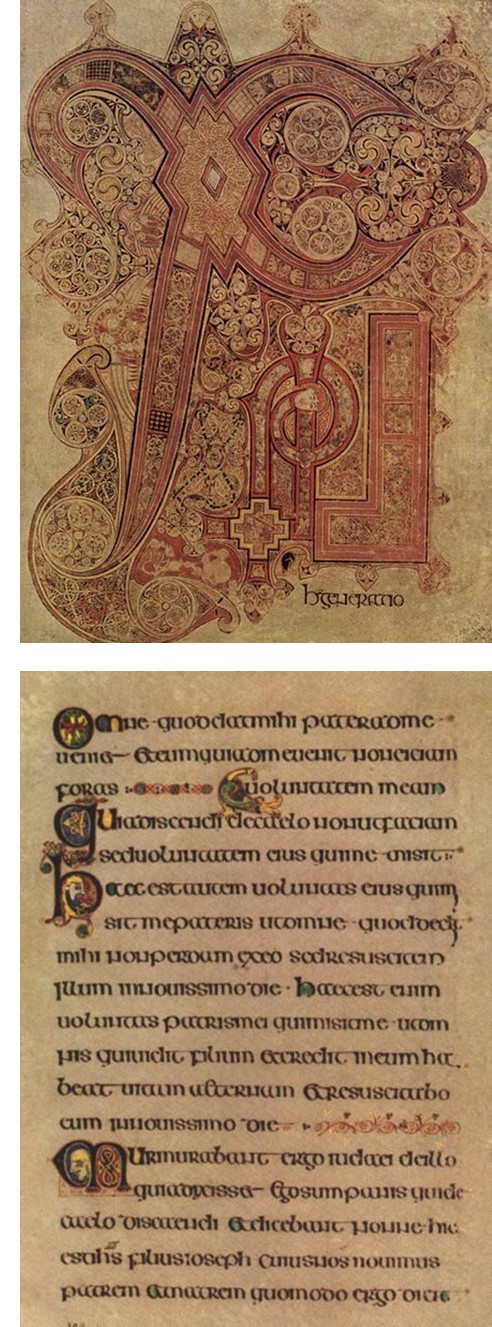 XPI
h generatio
Omne · quod dat mihi pater ad me ·
ueniet & eum qui ad me uenit non eiciam
foras uoluntatem meam
Quia discendi de caelo non ut faciam
sed uoluntatem eius qui me misit
Haec est autem uoluntas eius qui mi
sit me pateris ut omne · quod dedit
mihi non perdam ex eo sed resuscitem
illum in nouissimo die · haec est enim
uoluntas patris mei qui misit me · ut om
nis qui uidit filium & credit in eum ha
beat uitam aeternam & resuscitabo
eum in nouissimo die
Murmurabant ergo iudaei de illo
quia dixisset Ego sum panis qui de
caelo discendi & dicebant nonne hic
est filius ioseph cuius nos nouimus
patrem & matrem quomodo ergo dicit